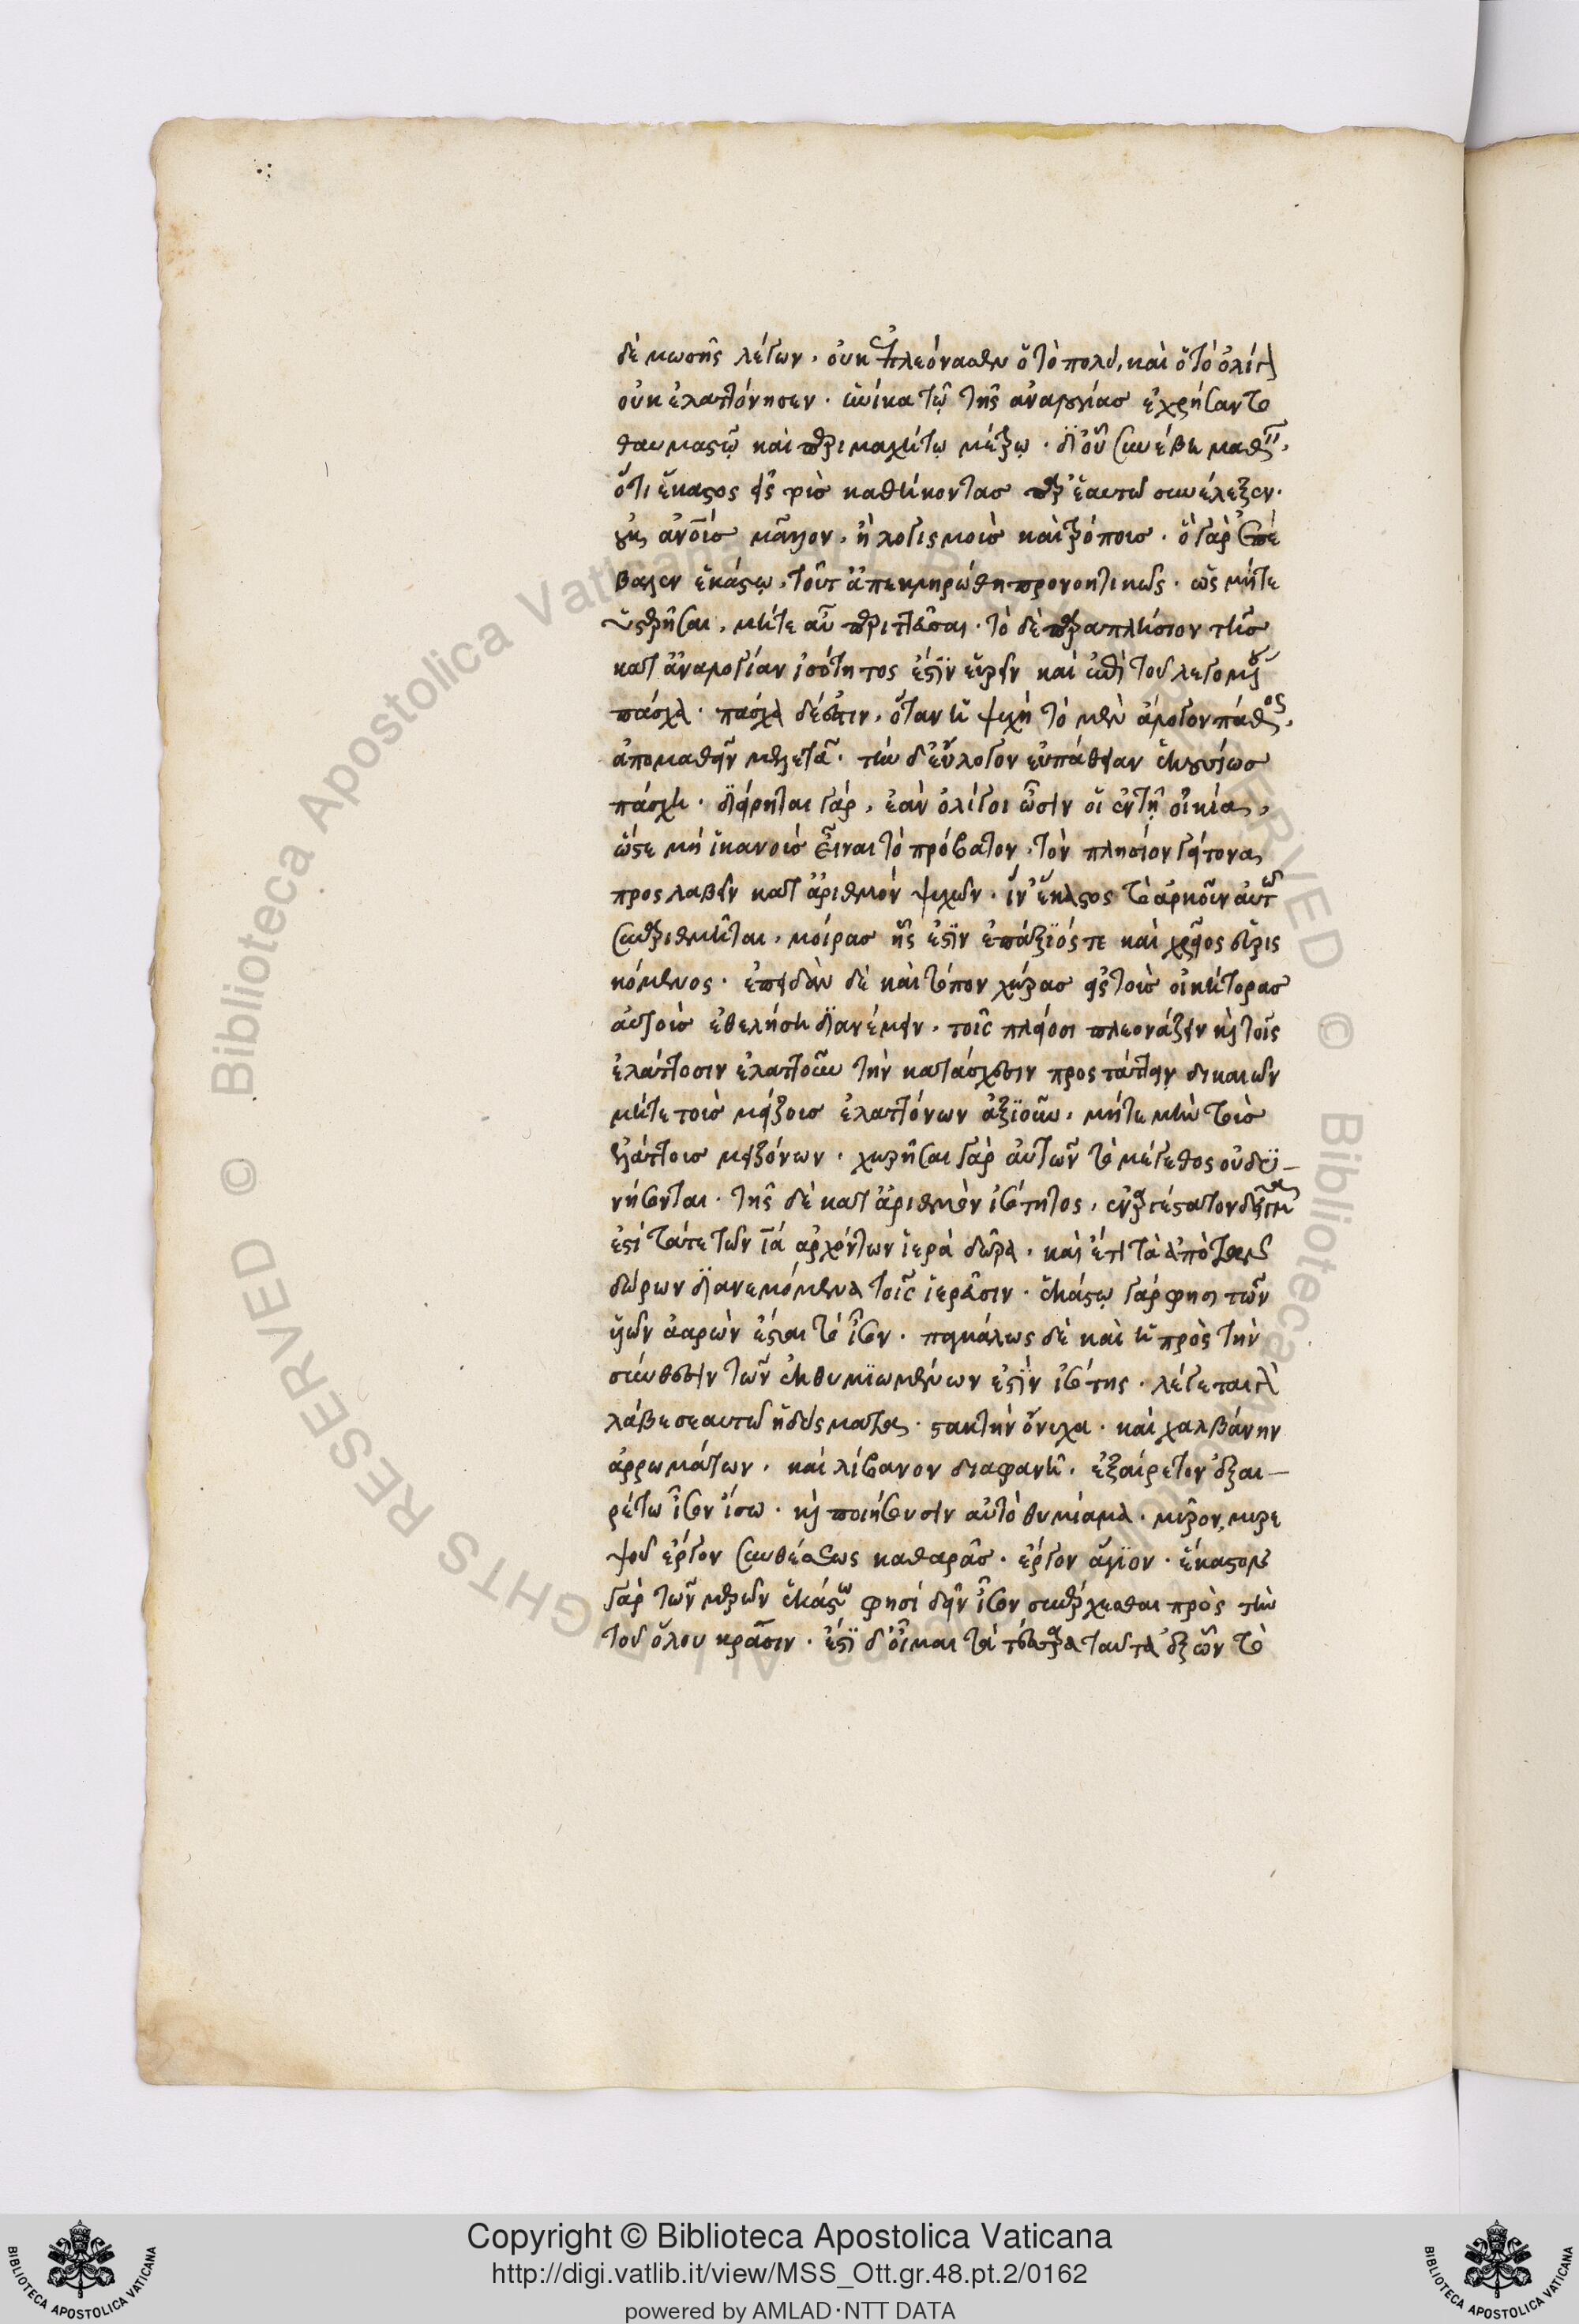 δὲ μωσῆς λέγων. οὐκ ἐπλεόνασεν ὁ τὸ πολύ, καὶ ὁ τὸ ὀλίγον
οὐκ ἐλαττόνησεν. ἡνίκα τῷ τῆς ἀναλογίας ἐχρήσαντο
θαυμαστῷ καὶ περιμαχήτῳ μέτρῳ. δι' οὗ συνέβη μαθεῖν,
ὅτι ἕκαστος εἰς τοὺς καθήκοντας παρ' ἑαυτῷ συνέλεξεν.
οὐκ ἀνοις μᾶλλον, ἢ λογισμοὺς καὶ τρόποις. ὃ γὰρ ἐπέ
βαλεν ἑκάστῳ, τοῦτ' ἀπεκληρώθη προνοητικῶς. ὡς μήτε
ὑστερῆσαι, μήτε αὖ περιττεῦσαι. τὸ δὲ παραπλήσιον τῆς
κατ' ἀναλογίαν ἰσότητος ἔστιν εὑρεῖν καὶ ἐπὶ τοῦ λεγομένου
πάσχα. πάσχα δέ ἐστιν, ὅταν ἡ ψυχὴ τὸ μὲν ἄλογον πάθος,
ἀπομαθεῖν μελετᾷ. τὴν δ' εὔλογον εὐπάθειαν ἑκουσίως
πάσχῃ. διείρηται γάρ, ἐὰν ὀλίγοι ὦσιν οἱ ἐν τῇ οἰκίᾳ,
ὥστε μὴ ἱκανοὺς εἶναι τὸ πρόβατον, τὸν πλησίον γείτονα
προσλαβεῖν κατ' ἀριθμὸν ψυχῶν. ἵν' ἕκαστος τὸ ἀρκοῦν αὐτῷ
συναριθμῆται, μοίρας ἧς ἐστιν ἐπάξιός τε καὶ χρεῖος εὑρισ
κόμενος. ἐπειδὰν δὲ καὶ τόπον χώρας εἰς τοὺς οἰκήτορας
αὐτοὺς ἐθελήσῃ διανέμειν, τοῖς πλείοσι πλεονάζειν καὶ τοῖς
ἐλάττοσιν ἐλαττοῦν τὴν κατάσχεσιν προστάττει, δικαιῶν
μήτε τοὺς μείζους ἐλαττόνων ἀξιοῦν, μήτε μὴν τοὺς
ἐλάττους μειζόνων. χωρῆσαι γὰρ αὐτῶν τὸ μέγεθος οὐ δυ-
νήσονται. τῆς δὲ κατ' ἀριθμὸν ἰσότητος, ἐναργέστατον δεῖγμα
ἐστὶ τά τε τῶν ιβ ἀρχόντων ἱερὰ δῶρα, καὶ ἔτι τὰ ἀπὸ τῶν
δώρων διανεμόμενα τοῖς ἱερεῦσιν. ἑκάστῳ γάρ φησι τῶν
υἱῶν ἀαρὼν ἔσται τὸ ἴσον. παγκάλως δὲ καὶ ἡ πρὸς τὴν
σύνθεσιν τῶν ἐκθυμιωμένων ἐστὶν ἰσότης. λέγεται γὰρ
λάβε σεαυτῷ ἡδύσματα. στακτὴν ὄνυχα. καὶ χαλβάνην
ἀρρωμάτων, καὶ λίβανον διαφανῆ. ἐξαίρετον ἐξαι-
ρέτῳ ἴσον ἴσῳ. καὶ ποιήσουσιν αὐτὸ θυμίαμα. μύρον, μυρε
ψοῦ ἔργον συνθέσεως καθαρᾶς. ἔργον ἅγιον. ἕκαστον
γὰρ τῶν μερῶν ἑκάστῳ φησὶ δεῖν ἴσον συνέρχεσθαι πρὸς τὴν
τοῦ ὅλου κρᾶσιν. ἔστι δ' οἶμαι τὰ τέσσαρα ταῦτα ἐξ ὧν τὸ
Copyright © Biblioteca Apostolica Vaticana
http://digi.vatlib.it/view/MSS_Ott.gr.48.pt.2/0162
powered by AMLAD·NTT DATA